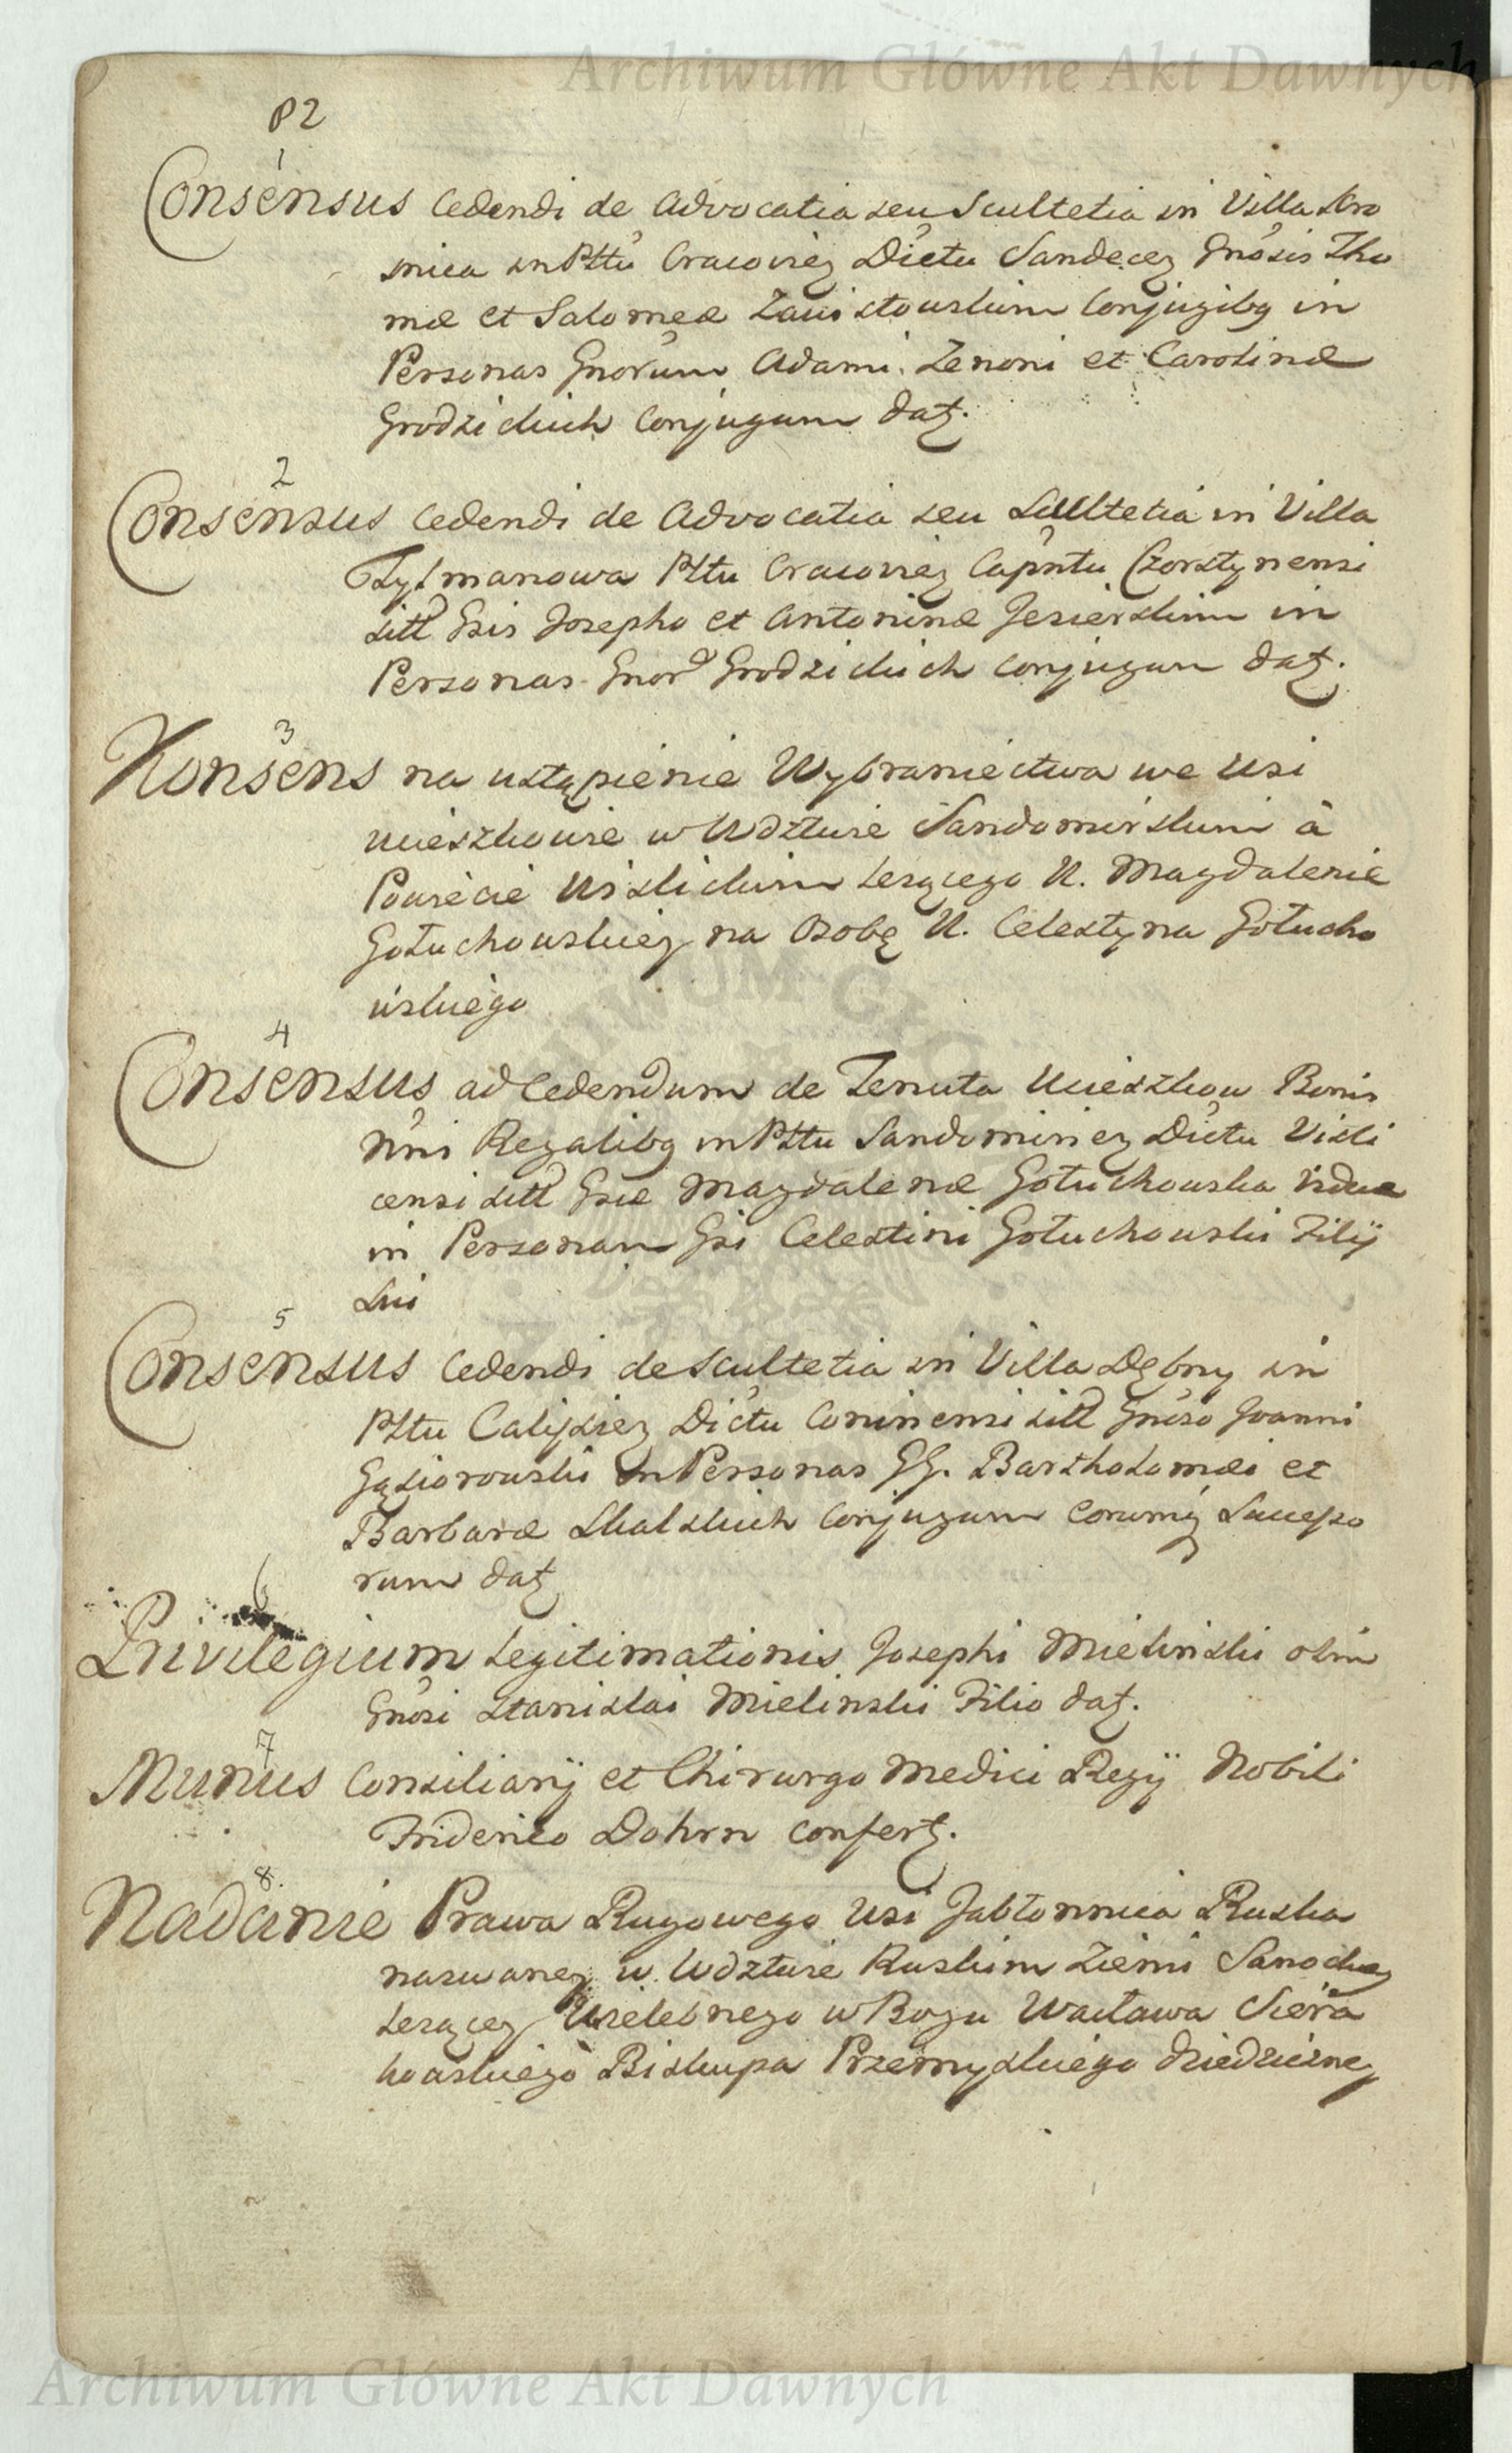 Archiwum Główne Akt Dawnych
P2
1
Consensus cedendi de Advocatia seu Scultetia in Villa Kro
snica in Pttu Cracovieg Dictu Sandeceg Gnosis Tho
mæ et Salomeæ Zawistowskim Conjugibg in
Personas Gnorum Adami Zenoni et Carolinæ
Grodzickich Conjugum datg.
2
Consensus cedendi de Advocatia seu Scultetia in Villa
Tylmanowa Pttu Cracovieg Capntu Czorstynensi
sitt Gsis Josepho et Antoninæ Jezierskim in
Personas Gnor Grodzickich Conjugum datg.
3
Konsens na ustąpienie Wybraniectwa we wsi
Mieszkowie w Wdztwie Sandomirskim à
Powiecie Wislickim lezącego W. Magdalenie
Gołuchowskiey na Osobę W. Celestyna Gołucho
wskiego
4
Consensus ad Cedendum de Tenuta Bonis
Nris Regalibg in Pttu Sandomirieg Dictu Visli
censi sitt Gsæ Magdalenæ Gołuchowska Viduæ
in Personam Gsi Celestini Gołuchowski Filij
Sui
5
Consensus Cedendi de Scultetia in Villa Dębny in
Pttu Calissieg Dictu Coninensi sitt Gnoso Joanni
Gąsiorowski in Personas GG. Bartholomæi et
Barbaræ Skalskich Conjugum Eorumq Successo
rum datg
6
Privilegium Legitimationis Josephi Mielinski olim
Gnosi Stanislai Mielinski Filio datg.
7
Munus Consiliarij et Chirurgo Medici Regij Nobili
Friderico Dohrn confertg.
8.
Nadanie Prawa Rugowego wsi Jabłonnica Ruska
nazwaney w Wdztwie Ruskim Ziemi Sanockiey
lezącey Wielebnego w Bogu Wacława Siera
kowskiego Biskupa Przemyskiego dziedziczney
Archiwum Główne Akt Dawnych